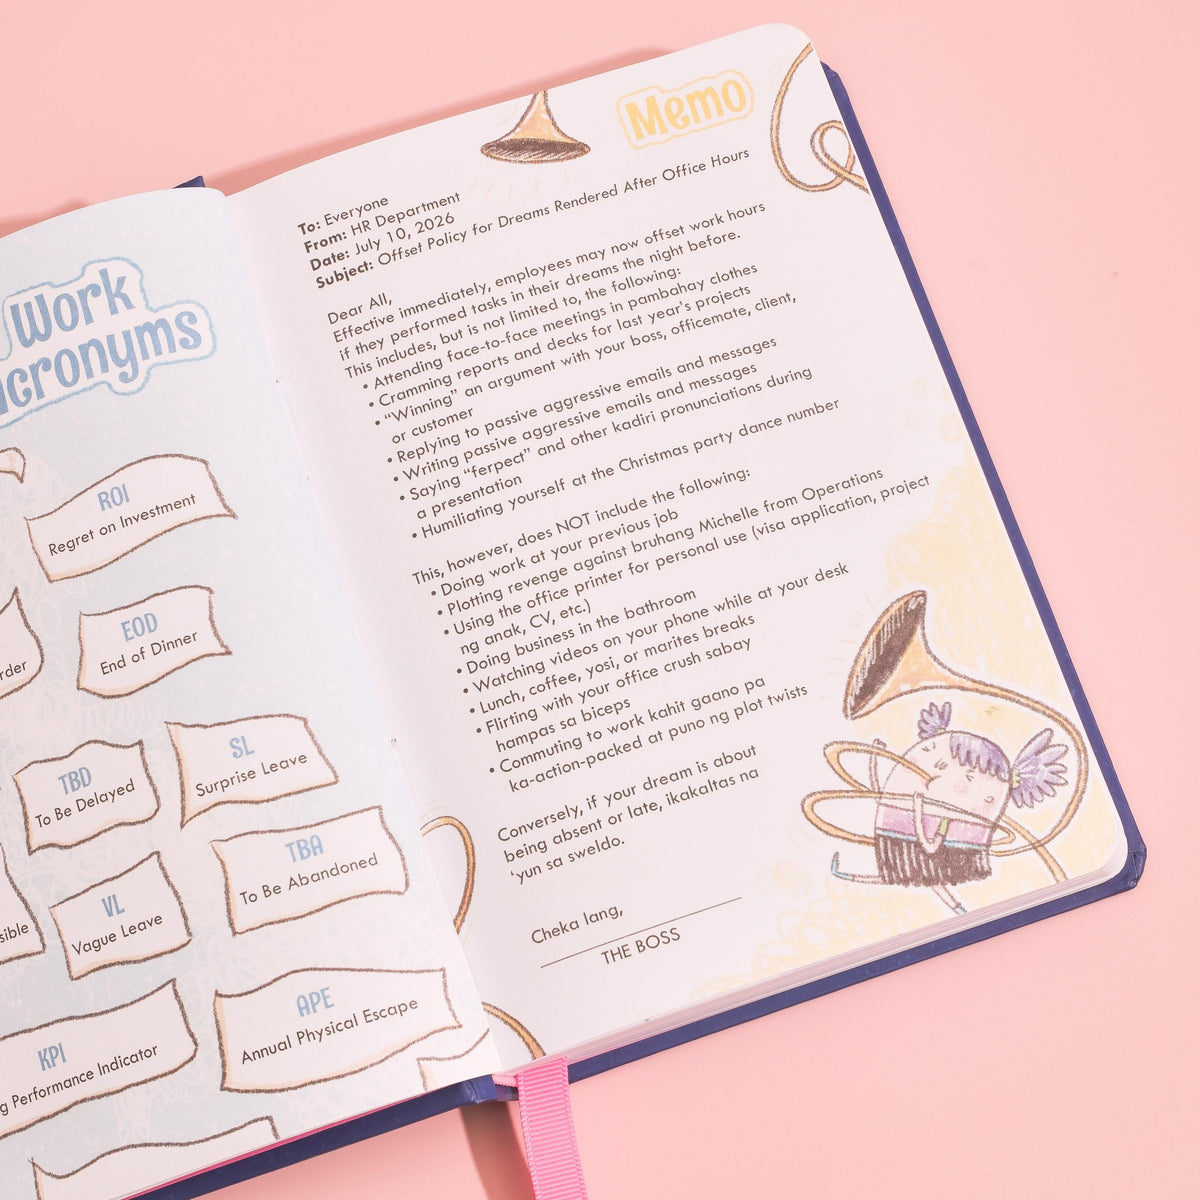 Work
Acronyms
ROI
Regret on Investment
EOD
End of Dinner
TBD
To Be Delayed
SL
Surprise Leave
TBA
To Be Abandoned
VL
Vague Leave
APE
Annual Physical Escape
KPI
Performance Indicator
Memo
To: Everyone
From: HR Department
Date: July 10, 2026
Subject: Offset Policy for Dreams Rendered After Office Hours
Dear All,
Effective immediately, employees may now offset work hours
if they performed tasks in their dreams the night before.
This includes, but is not limited to, the following:
• Attending face-to-face meetings in pambahay clothes
• Cramming reports and decks for last year's projects
• “Winning” an argument with your boss, officemate, client,
or customer
• Replying to passive aggressive emails and messages
• Writing passive aggressive emails and messages
• Saying “ferpect” and other kadiri pronunciations during
a presentation
• Humiliating yourself at the Christmas party dance number
This, however, does NOT include the following:
• Doing work at your previous job
• Plotting revenge against bruhang Michelle from Operations
• Using the office printer for personal use (visa application, project
ng anak, CV, etc.)
• Doing business in the bathroom
• Watching videos on your phone while at your desk
• Lunch, coffee, yosi, or marites breaks
• Flirting with your office crush sabay
hampas sa biceps
• Commuting to work kahit gaano pa
ka-action-packed at puno ng plot twists
Conversely, if your dream is about
being absent or late, ikakaltas na
‘yun sa sweldo.
Cheka lang,
THE BOSS